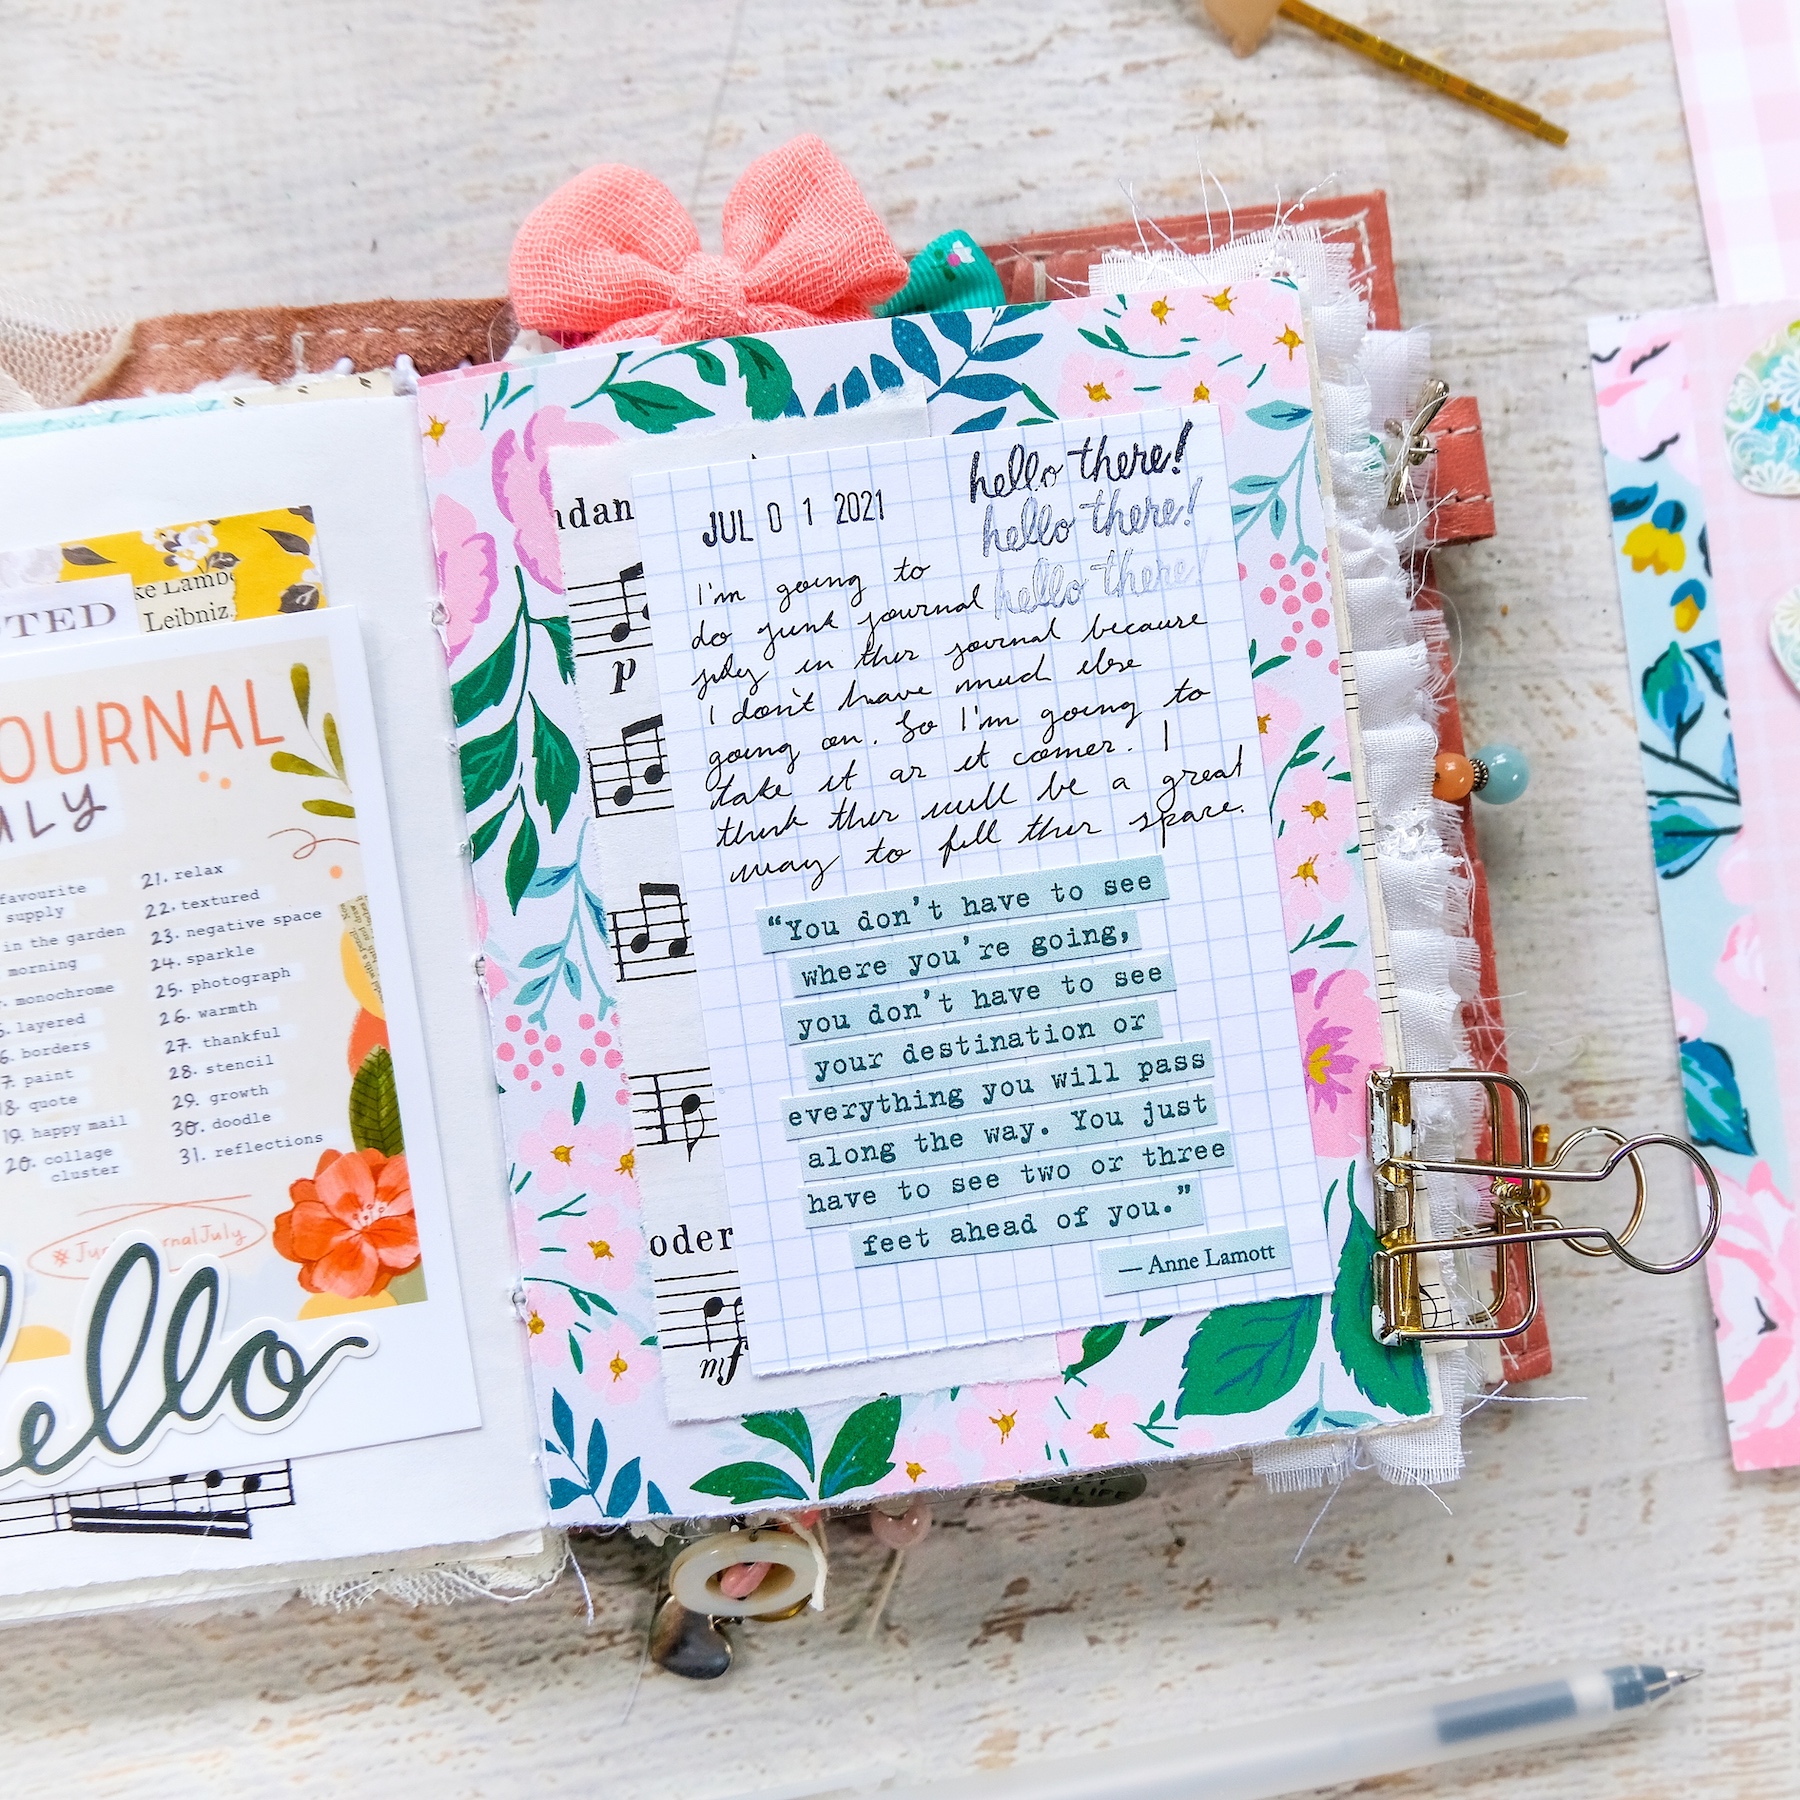 OTED
ke Lamb
Leibniz.
OURNAL
favourite
supply
in the garden
morning
monochrome
layered
6. borders
7. paint
18. quote
19. happy mail
20. collage
cluster
21. relax
22. textured
23. negative space
24. sparkle
25. photograph
26. warmth
27. thankful
28. stencil
29. growth
30. doodle
31. reflections
hello
ndan
p
oder
JUL 0 1 2021
hello there!
hello there!
hello there!
I'm going to
do junk journal
july in this journal because
I don't have much else
going on. So I'm going to
take it as it comes. I
think this will be a great
way to fill this space.
“You don't have to see
where you're going,
you don't have to see
your destination or
everything you will pass
along the way. You just
have to see two or three
feet ahead of you.”
— Anne Lamott